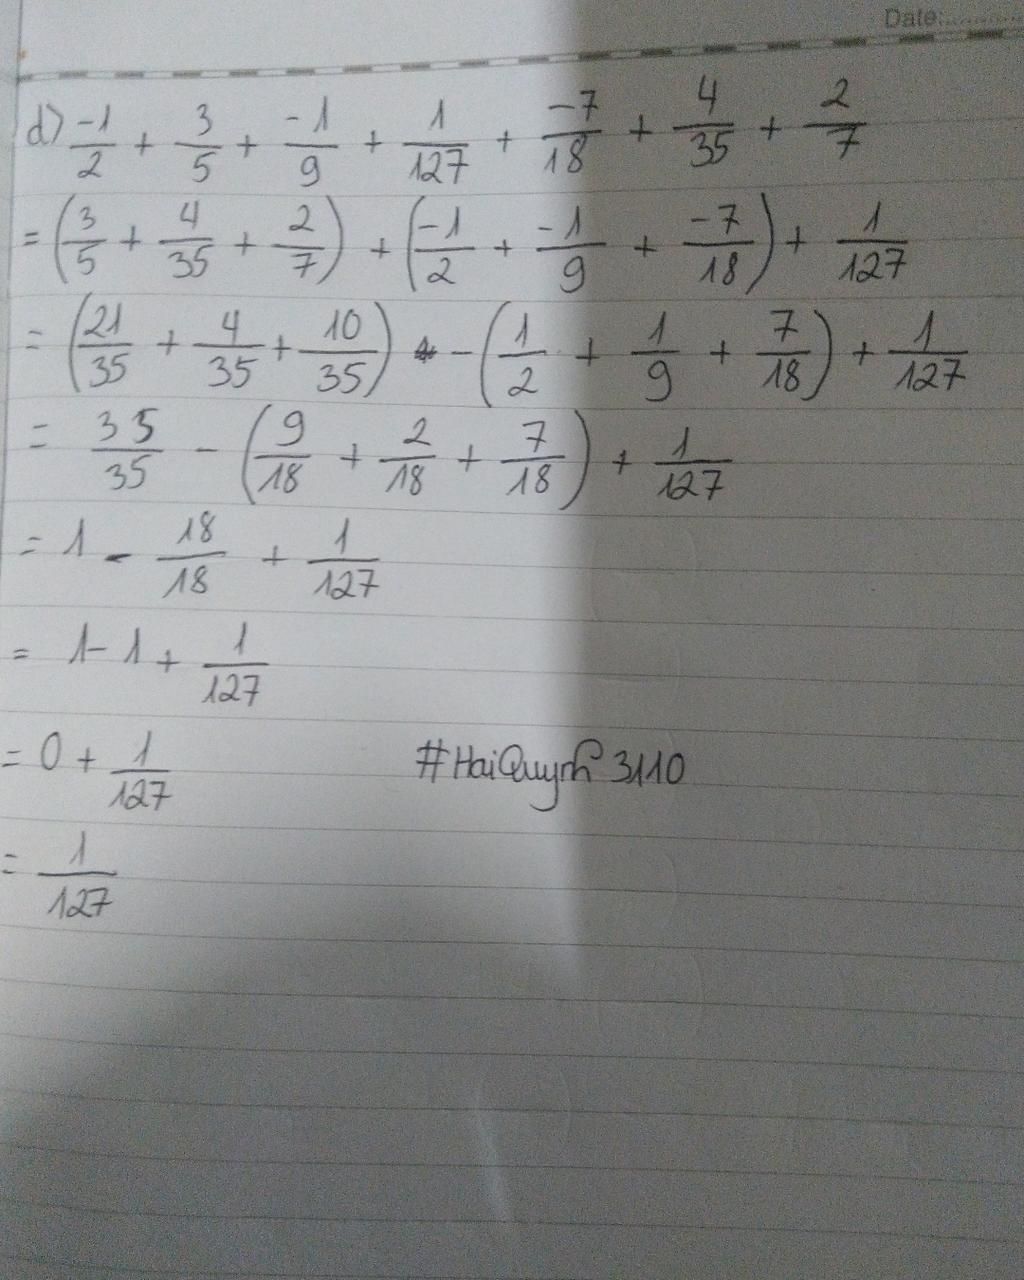 Date:............
d) -1/2 + 3/5 + -1/9 + 1/127 + -7/18 + 4/35 + 2/7
= (3/5 + 4/35 + 2/7) + (-1/2 + -1/9 + -7/18) + 1/127
= (21/35 + 4/35 + 10/35) - (1/2 + 1/9 + 7/18) + 1/127
= 35/35 - (9/18 + 2/18 + 7/18) + 1/127
= 1 - 18/18 + 1/127
= 1 - 1 + 1/127
= 0 + 1/127
#HaiQuynh3110
= 1/127